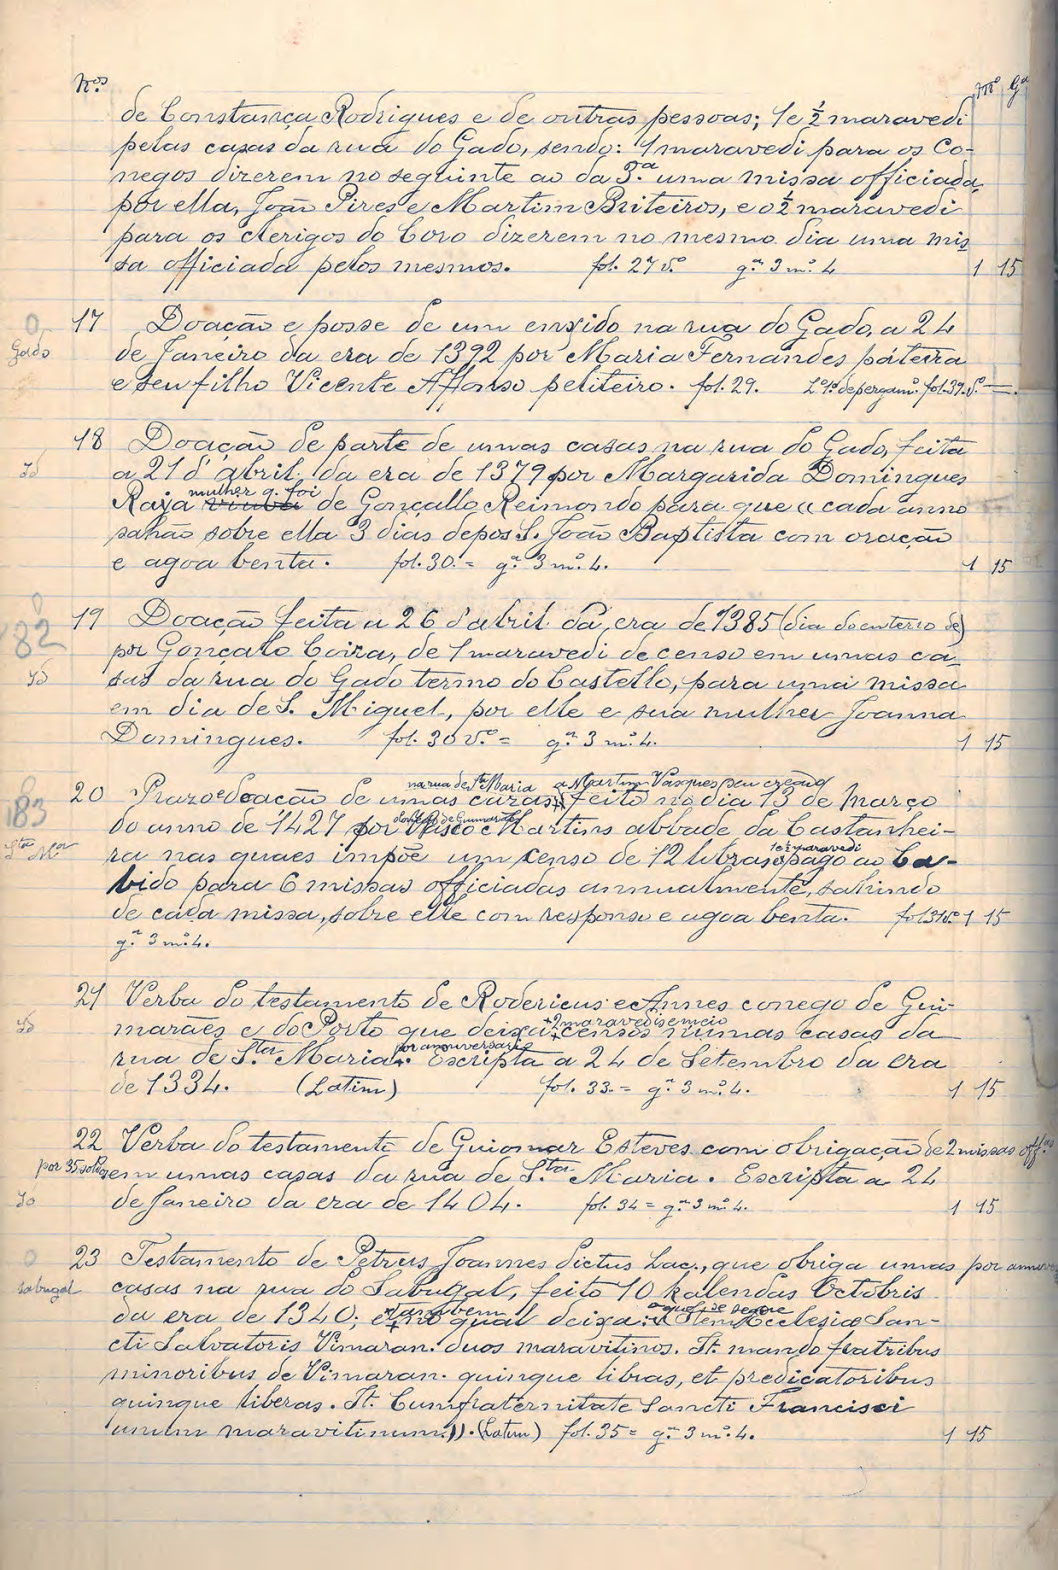 Nos Mo Ga
de Constança Rodrigues e de outras pessoas; 1 e ½ maravedi
pelas casas da rua do Gado, sendo: 1 maravedi para os Co-
negos dizerem no seguinte ao da 3.ª uma missa officiada
por ella, João Pires e Martim Briteiros, e o ½ maravedi
para os clerigos do Coro dizerem no mesmo dia uma mis
sa officiada pelos mesmos. fol. 27 v.º g.ª 3 m.º 4 1 15
17 Doação e posse de um enxido na rua do Gado, a 24
Gado de Janeiro da era de 1392 por Maria Fernandes páteira
e seu filho Vicente Affonso peliteiro. fol. 29. L.º de pergam.º fol. 39 v.º —.
18 Doação de parte de umas casas na rua do Gado, feita
Id a 21 d'abril da era de 1379 por Margarida Domingues
mulher q. foi
Raxa viuba de Gonçallo Reimondo para que « cada anno
sahão sobre ella 3 dias depos S. João Baptista com oração
e agoa benta. fol. 30. = g.ª 3 m.º 4. 1 15
19 Doação feita a 26 d'abril da era de 1385 (dia do enterro de)
182 por Gonçalo Coira, de 1 maravedi de censo em umas ca-
Id sas da rua do Gado termo do Castello, para uma missa
em dia de S. Miguel, por elle e sua mulher Joanna
Domingues. fol. 30 v.º = g.ª 3 m.º 4. 1 15
na rua de Sta Maria a Martim Vasques seu creado
20 Prazo e doação de umas cazas, feito no dia 13 de Março
183 do anno de 1427 por Vasco Martins abbade da Castanhei-
Sta Mar 1 e ½ maravedi
ra nas quaes impõe um censo de 12 libras pago ao Ca-
bido para 6 missas officiadas annualmente, sahindo
de cada missa, sobre elle com responso e agoa benta. fol 31 v.º 1 15
g.ª 3 m.º 4.
21 Verba do testamento de Rodericus e Annes conego de Gui-
+ 2 maravedis e meio
Id marães e do Porto que deixa censos numas casas da
por anniversario
rua de S.ta Maria. Escripta a 24 de Setembro da era
de 1334. (Latim) fol. 33. = g.ª 3 m.º 4. 1 15
22 Verba do testamento de Guiomar Esteves com obrigação de 2 missas off.as
por 35 soldos em umas casas da rua de S.ta Maria. Escripta a 24
Id de Janeiro da era de 1404. fol. 34 = g.ª 3 m.º 4. 1 15
23 Testamento de Petrus Joannes dictus Lac., que obriga umas por anniver
Sabugal casas na rua do Sabugal, feito 10 kalendas Octobris
tambem o que se segue
da era de 1340; e no qual deixa: « Item Ecclesiæ San-
cti Salvatoris Vimaran. duos maravitinos. It. mando fratribus
minoribus de Vimaran. quinque libras, et predicatoribus
quinque liberas. It. Cumfraternitate Sancti Francisci
unum maravitinum ». (Latim) fol. 35 = g.ª 3 m.º 4. 1 15